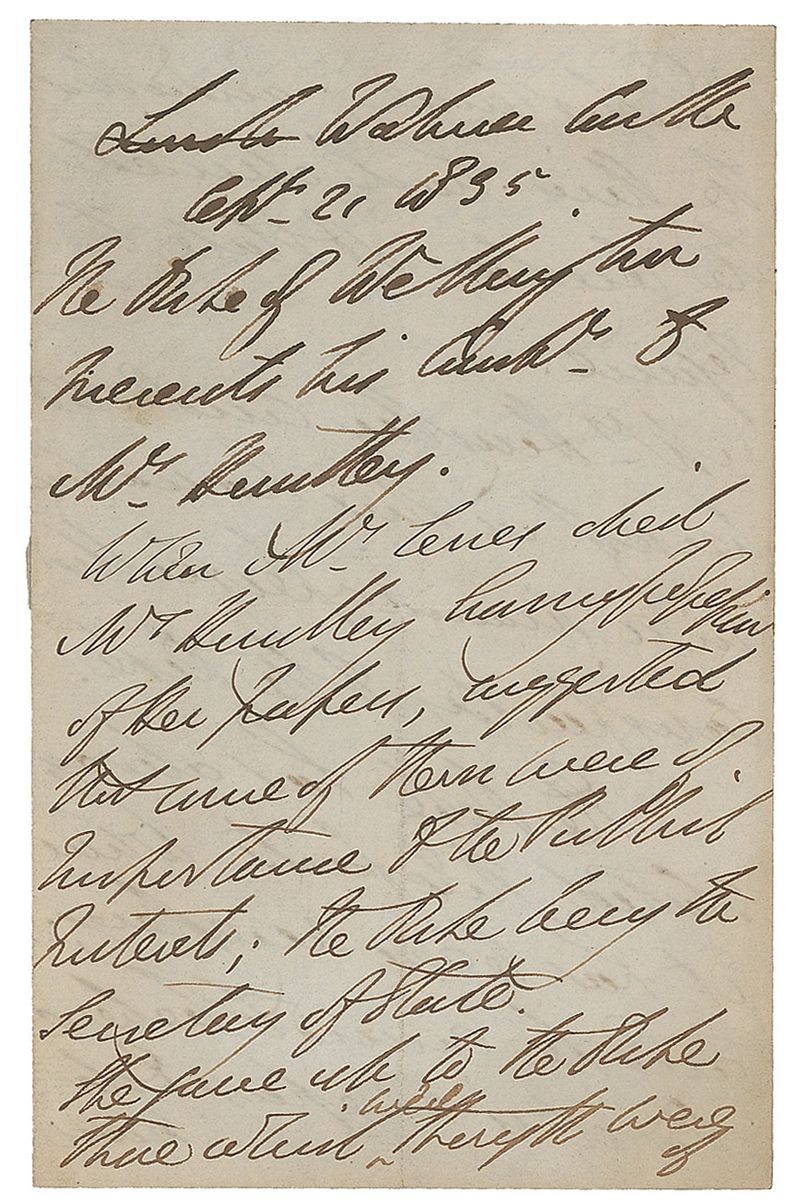 London Walmer Castle
Sept. 21 1835.
The Duke of Wellington
presents his Compts. to
Mr. Huntley.
When Mr. died
Mr Huntley having possession
of her papers, suggested
that some of them were of
importance to the Publick
Interests; the Duke being the
Secretary of State.
He gave up to the Duke
those which were thought were
of